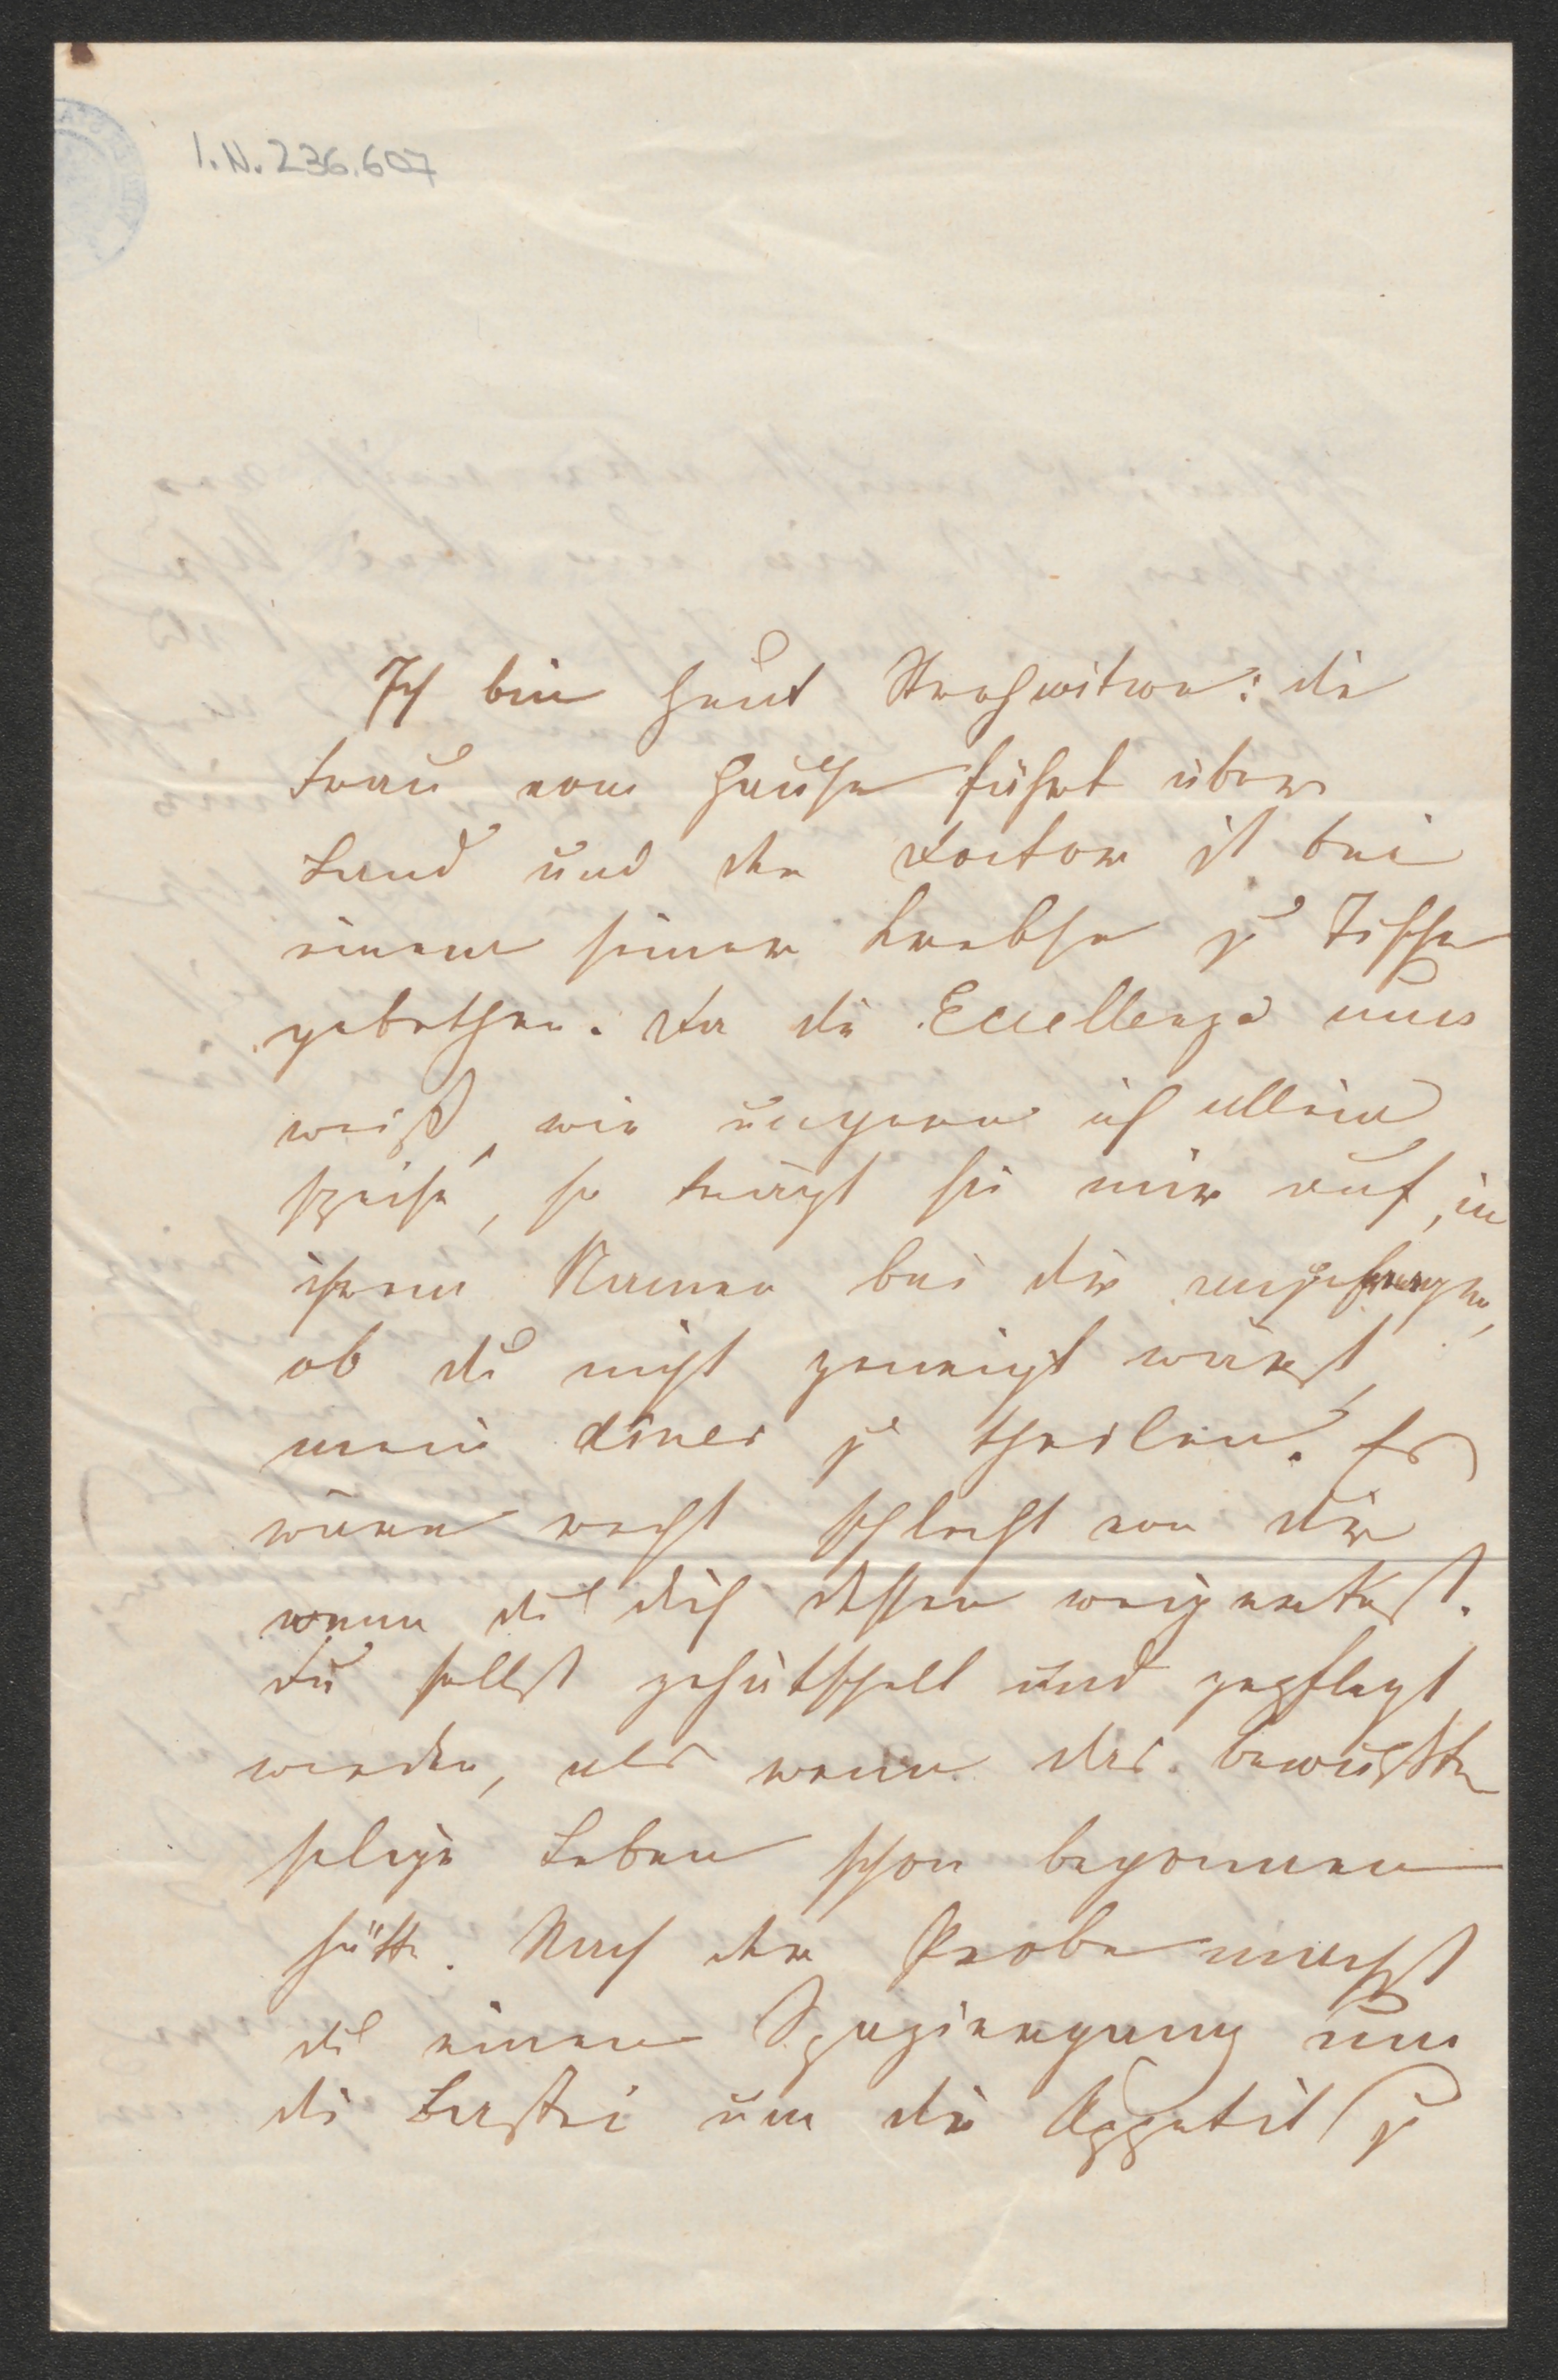 I.N. 236.607
Ich bin heut Strohwitwe: die
Frau vom Hause fährt über
Land und der Doctor ist bei
einem seiner Krebse zu Tische
gebethen. Da die Excellenza nun
weiß, wie ungern ich allein
speise, so trägt sie mir auf, in
ihrem Namen bei dir anzufragen,
ob du nicht geneigt wärest,
mein diner zu theilen. Es
wäre recht schlecht von dir
wenn du dich dessen weigertest.
Du sollst gehätschelt und gepflegt
werden, als wenn das bewußte
selige Leben schon begonnen
hätte. Nach der Probe machst
du einen Spaziergang um
die Bastei um dir Appetit zu